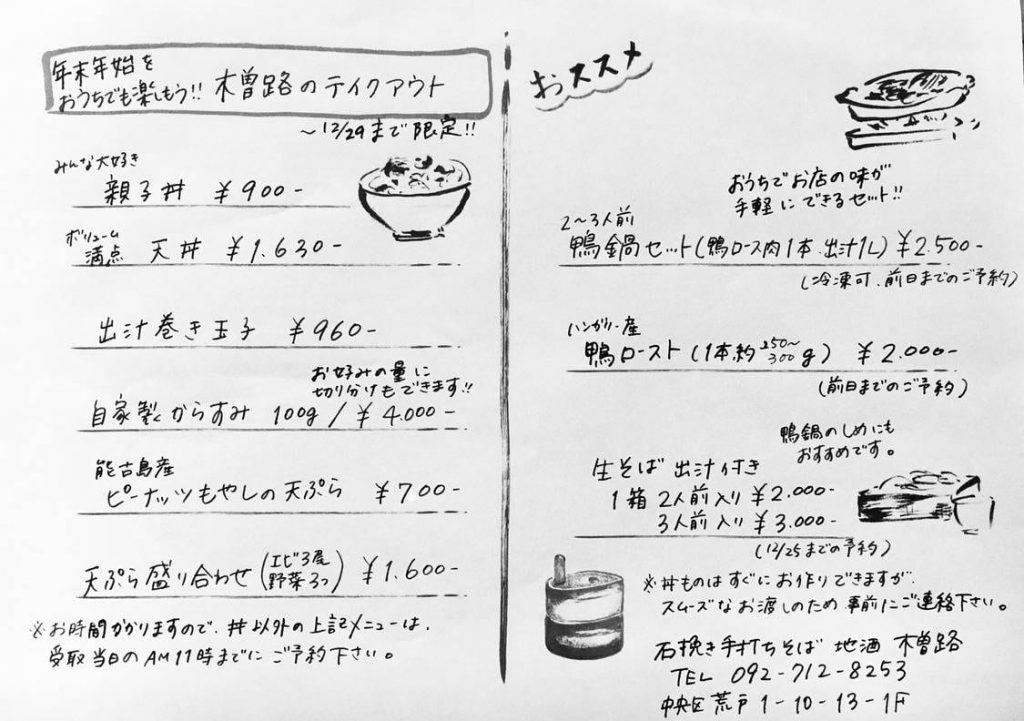 年末年始を
おうちでも楽しもう!! 木曽路のテイクアウト
～12/29まで限定!!
みんな大好き
親子丼 ¥900-
ボリューム
満点 天丼 ¥1.630-
出汁巻き玉子 ¥960-
お好みの量に
切り分けもできます!!
自家製からすみ 100g/¥4.000-
能古島産
ピーナッツもやしの天ぷら ¥700-
天ぷら盛り合わせ(エビ3尾 野菜3つ) ¥1.600-
※お時間かかりますので、丼以外の上記メニューは、
受取当日のAM11時までにご予約下さい。
おススメ
おうちでお店の味が
手軽にできるセット!!
2～3人前
鴨鍋セット(鴨ロース肉1本、出汁1L) ¥2.500-
(冷凍可、前日までのご予約)
ハンガリー産
鴨ロースト(1本約250～300g) ¥2.000-
(前日までのご予約)
鴨鍋のしめにも
おすすめです。
生そば 出汁付き
1箱 2人前入り ¥2.000-
3人前入り ¥3.000-
(12/25までの予約)
※丼ものはすぐにお作りできますが、
スムーズなお渡しのため事前にご連絡下さい。
石挽き手打ちそば 地酒 木曽路
TEL 092-712-8253
中央区荒戸1-10-13-1F